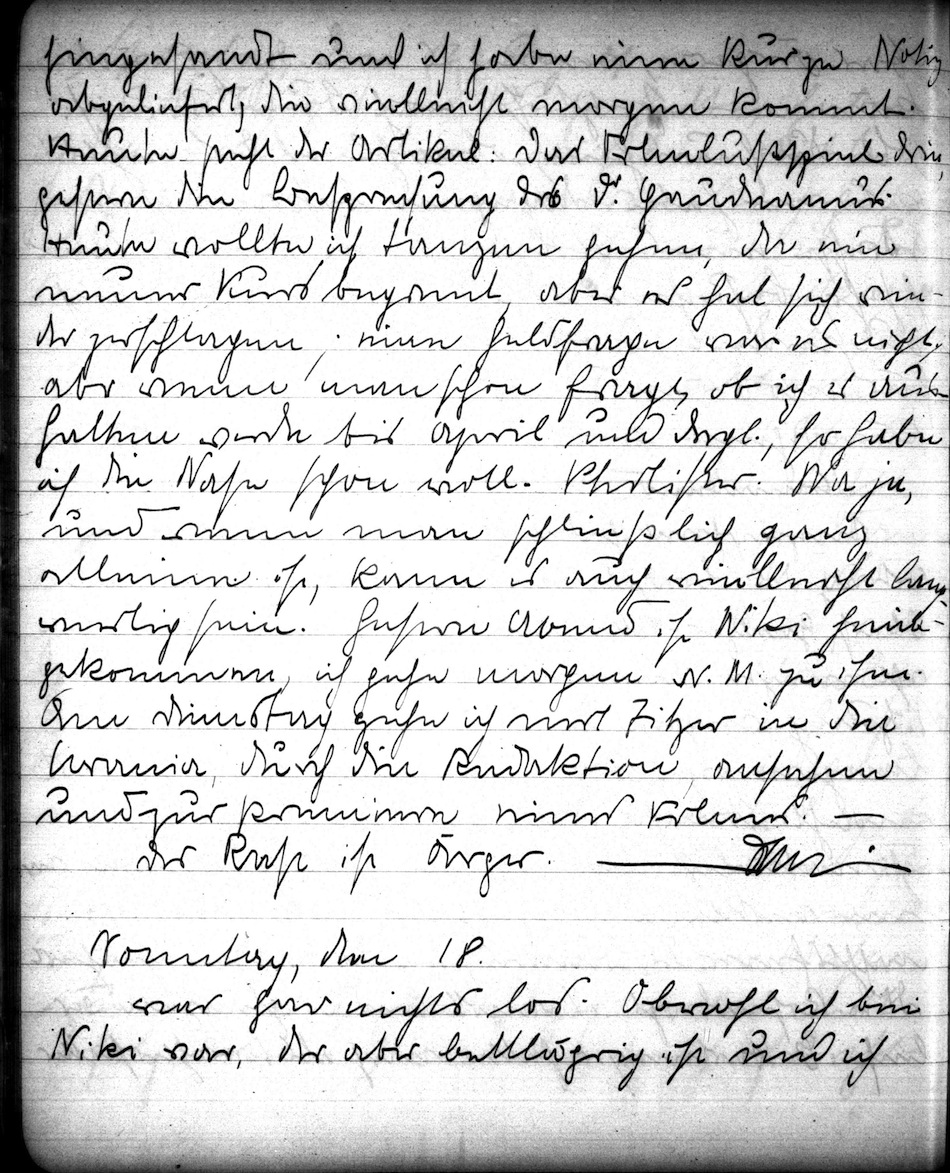 eingesandt und ich habe eine kurze Notiz
abgeliefert, die vielleicht morgen kommt.
Heute steht der Artikel: Das Filmlustspiel drin,
gestern die Besprechung des Dr. Gaudeamus.
Heute wollte ich tanzen gehen, da ein
neuer Kurs beginnt, aber es hat sich wie-
der zerschlagen; eine Geldfrage war es nicht,
aber wenn man schon fragt, ob ich es aus-
halten werde bis April und dergl., so habe
ich die Nase schon voll. Philister. Na ja,
und wenn man schließlich ganz
alleine ist, kann es auch vielleicht lang-
weilig sein. Gestern Abend ist Niki heim-
gekommen, ich gehe morgen N.M. zu ihm.
Am Dienstag gehe ich mit Zitzer in die
Urania, durch die Redaktion, ansehen
und zur Premiere eines Filmes. —
Der Rest ist Ärger.
Sonntag, den 18.
war gar nichts los. Obwohl ich bei
Niki war, der aber bettlägrig ist und ich